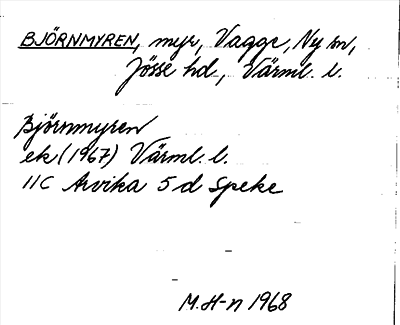 BJÖRNMYREN, myr, Vagge, Ny sn,
Jösse hd., Värml. l.
Björnmyren
ek (1967) Värml. l.
11C Arvika 5 d Speke
M. H-n 1968